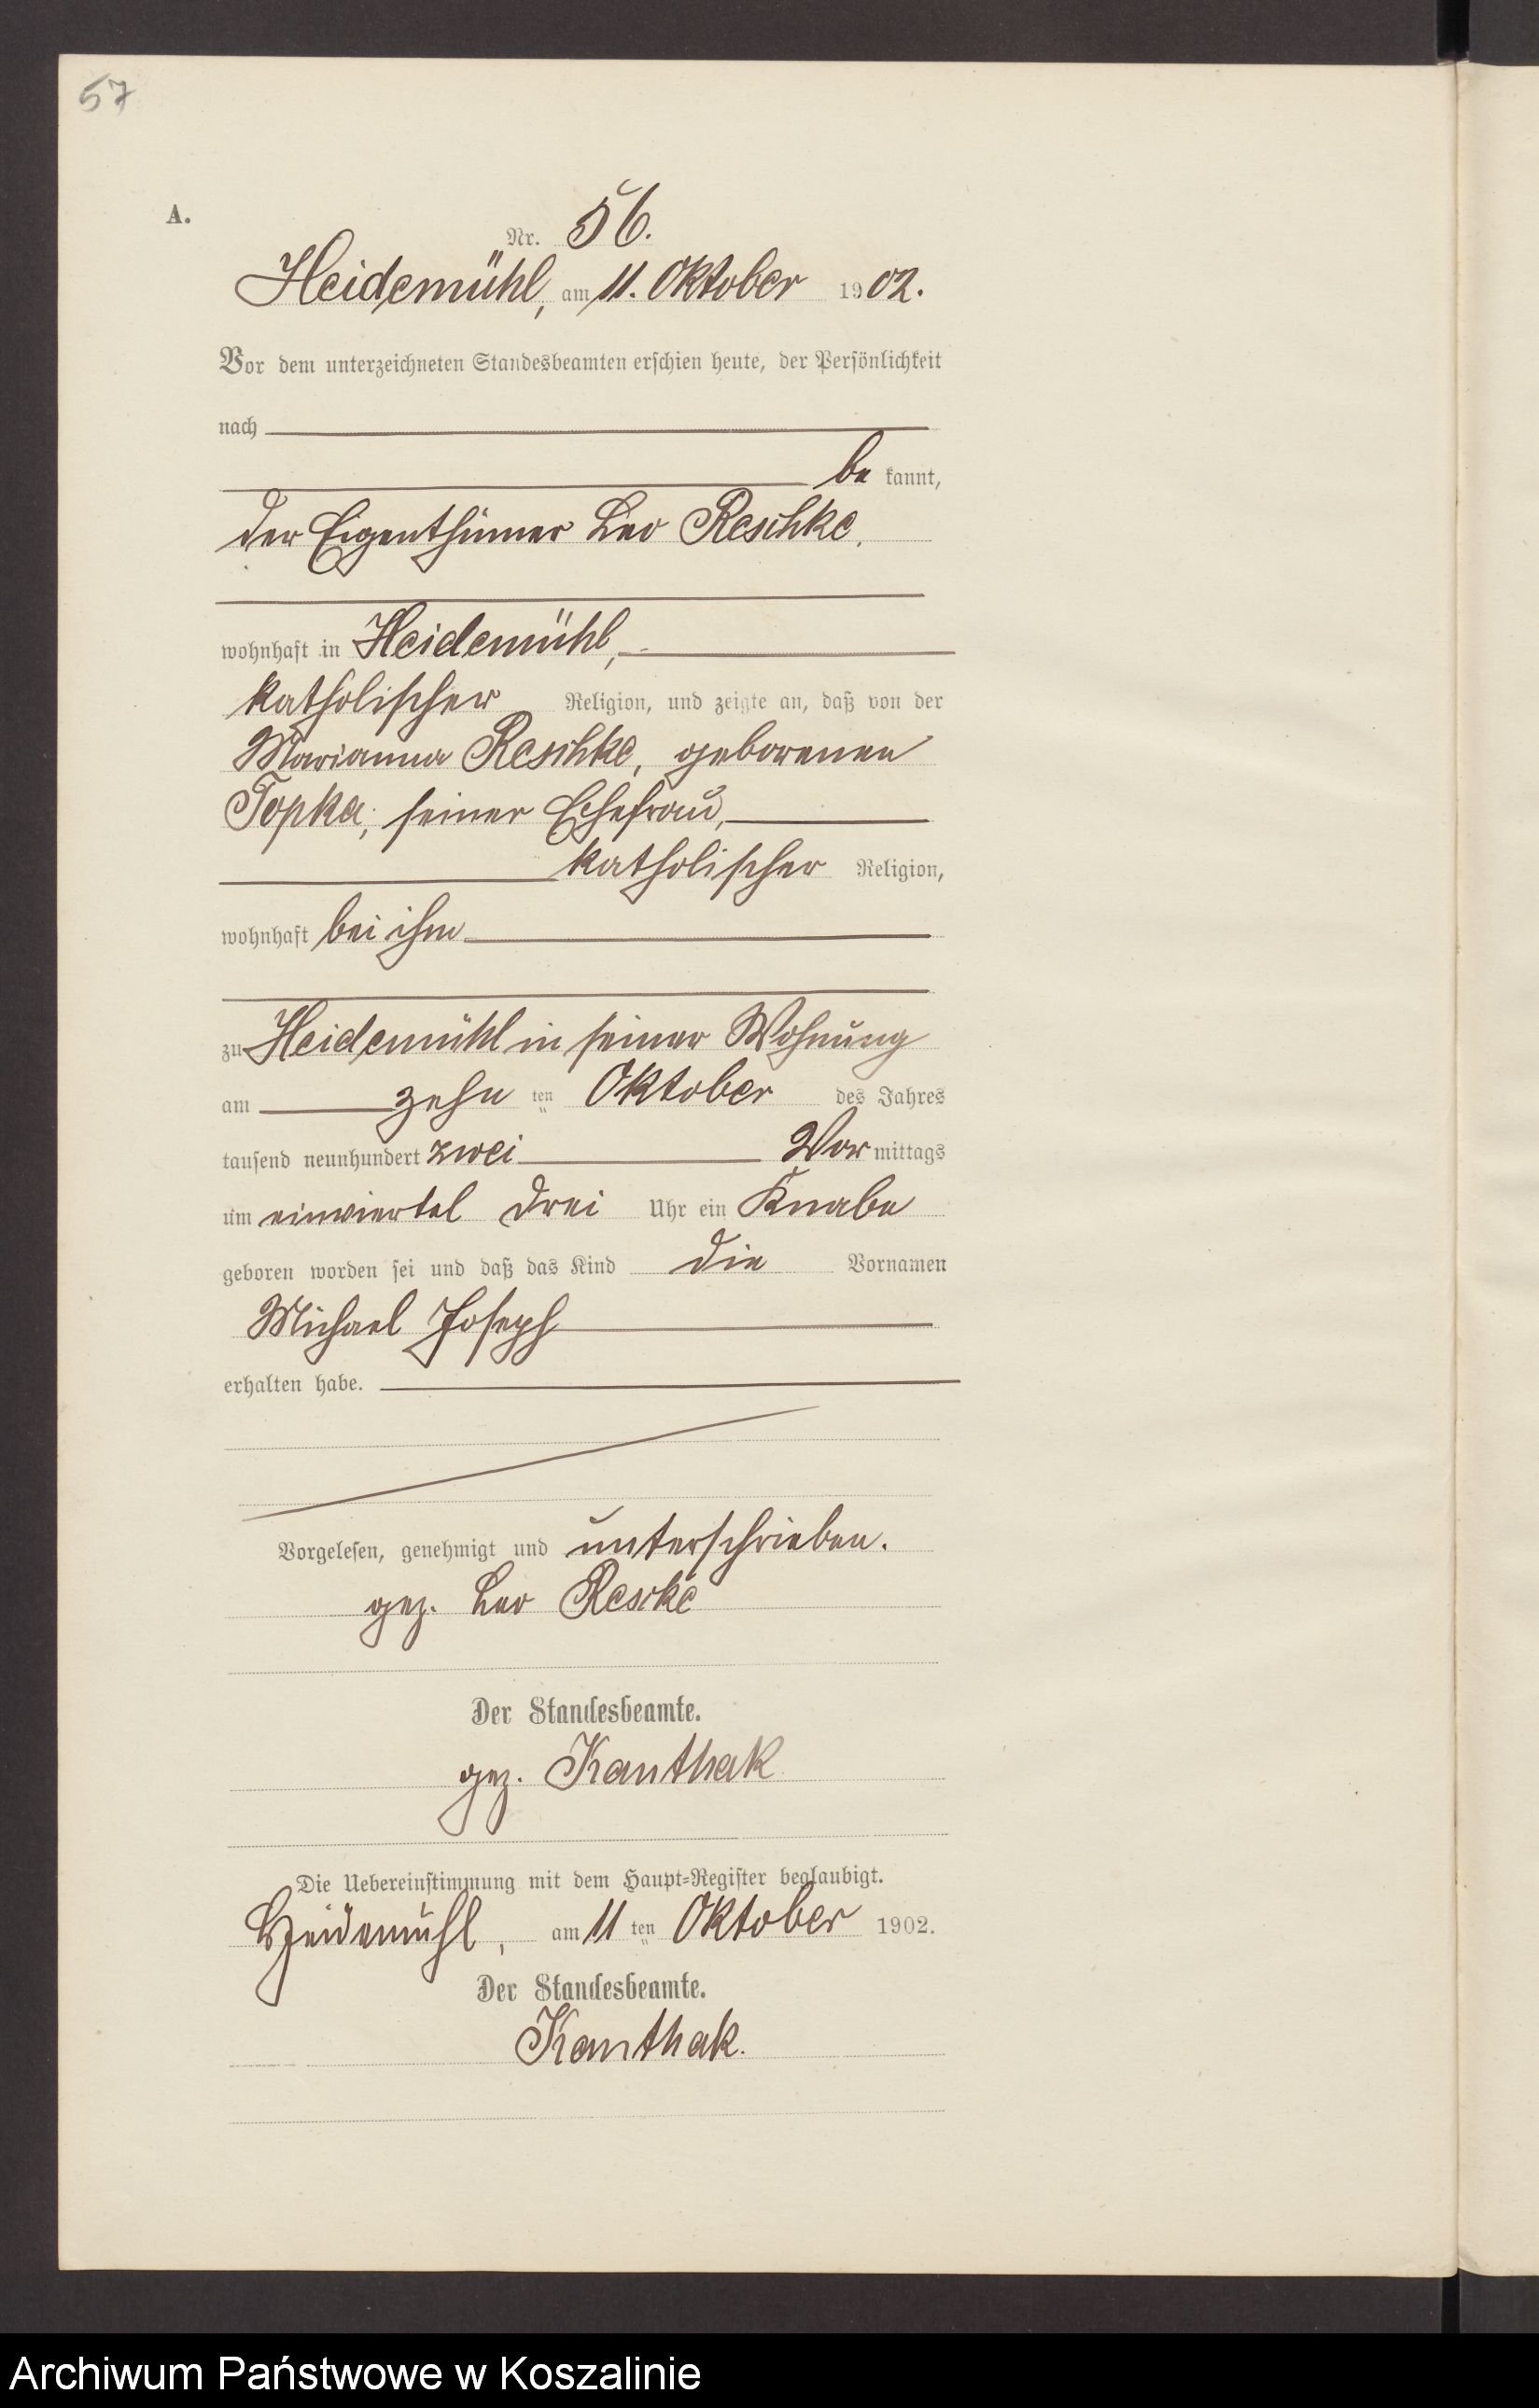 57
A.
Nr. 56.
Heidemühl, am 11. Oktober 1902.
Vor dem unterzeichneten Standesbeamten erschien heute, der Persönlichkeit
nach
be kannt,
der Eigenthümer Leo Reschke,
wohnhaft in Heidemühl,
katholischer Religion, und zeigte an, daß von der
Marianna Reschke, geborenen
Topka, seiner Ehefrau,
katholischer Religion,
wohnhaft bei ihm
zu Heidemühl in seiner Wohnung
am zehn ten Oktober des Jahres
tausend neunhundert zwei Vor mittags
um einviertel drei Uhr ein Knabe
geboren worden sei und daß das Kind die Vornamen
Michael Joseph
erhalten habe.
Vorgelesen, genehmigt und unterschrieben.
gez. Leo Rescke
Der Standesbeamte.
gez. Kanthak
Die Uebereinstimmung mit dem Haupt=Register beglaubigt.
Heidemühl, am 11 ten Oktober 1902.
Der Standesbeamte.
Kanthak.
Archiwum Państwowe w Koszalinie